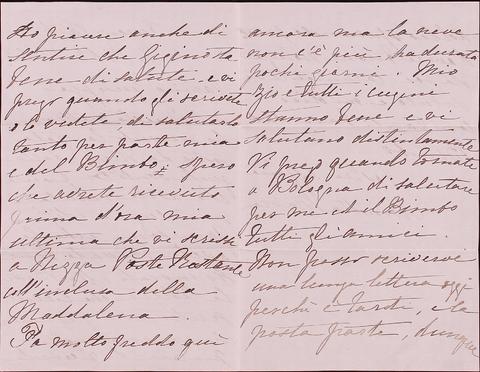 Ho piacere anche di
sentire che Gigino sta
bene di salute. e vi
prego quando gli scrivete
o lo vedete, di salutarlo
tanto per parte mia
e del Bimbo; spero
che avrete ricevuto
prima d'ora mia
ultima che vi scrissi
a Nizza Poste Restante
coll'inclusa della
Maddalena.
Fa molto freddo qui
ancora ma la neve
non c'è più, ha durata
pochi giorni. Mio
Zio e tutti i cugini
stanno bene e vi
salutano distintamente
Vi prego quando tornate
a Bologna di salutare
per me ed il Bimbo
tutti gli amici.
Non posso scrivervi
una lunga lettera oggi
perchè è tardi, e la
posta parte, dunque